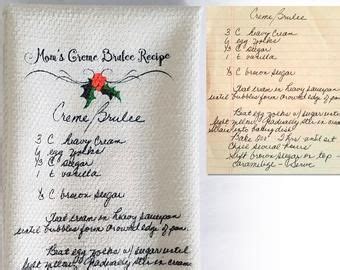 Mom's Creme Brulee Recipe
Creme/Brulee
3 C heavy cream
6 egg yolks
⅓ C sugar
1 t vanilla
⅓ C brown sugar
Heat cream in heavy saucepan
until bubbles form around edge of pan.
Beat egg yolks w/ sugar until
light, Gradually stir in cream
Creme/Brulee
3 C heavy cream
6 egg yolks
⅓ C sugar
1 t vanilla
⅓ C brown sugar
Heat cream in heavy saucepan
until bubbles form around edge of pan.
Beat egg yolks w/ sugar until
light, Gradually stir in cream
into baking dish
Bake 300° 1 hr until set
Chill several hours
Sift brown sugar on top -
Caramelize - Serve